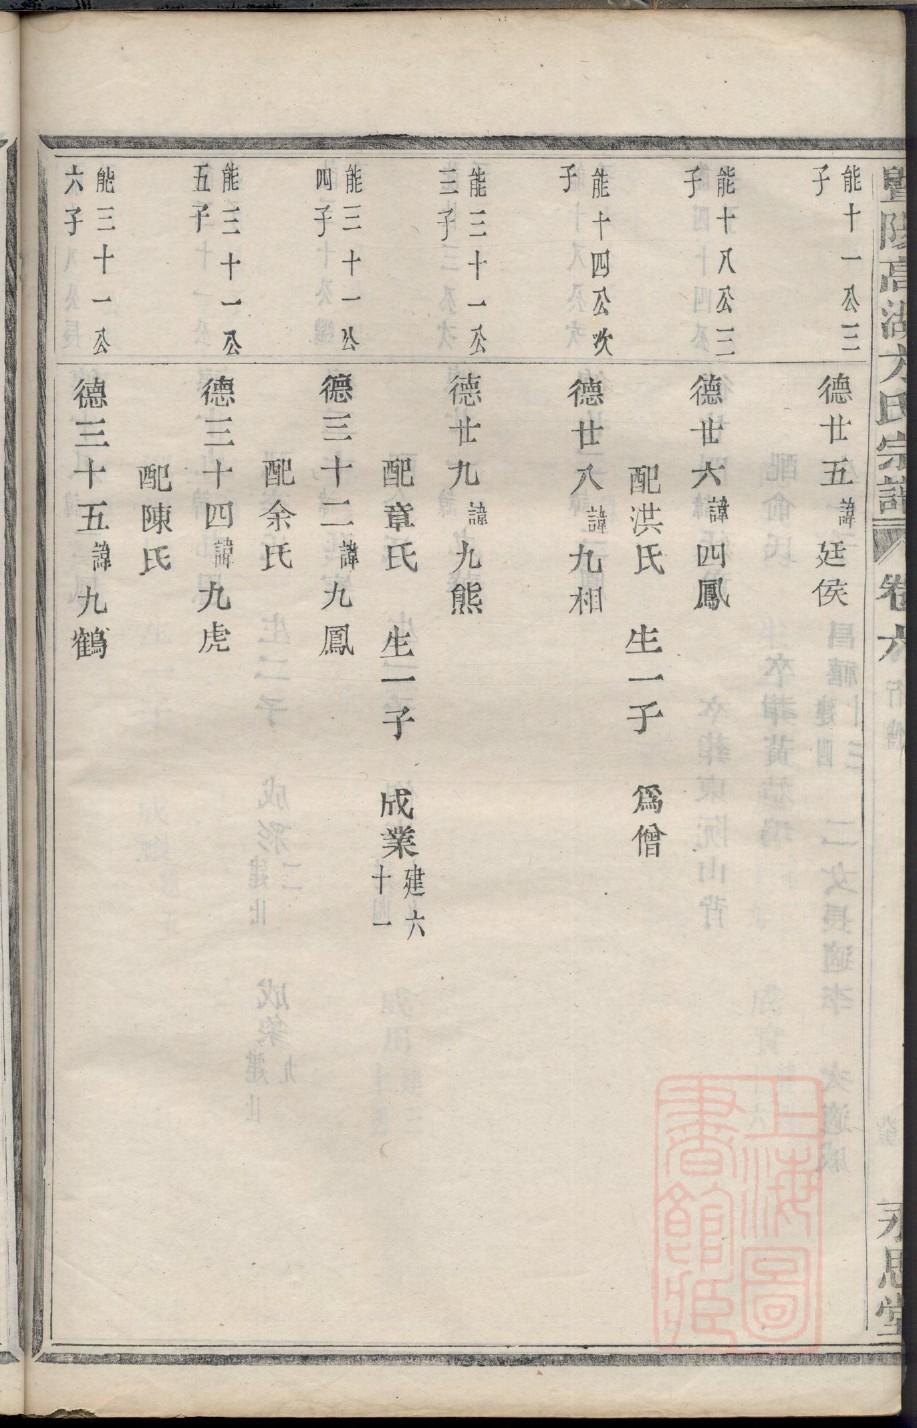 暨陽高湖方氏宗譜
卷六
行譜
永思堂
能十一公三
子
德廿五諱廷侯
能十八公三
子
德廿六諱四鳳
配洪氏 生一子 爲僧
能十四公次
子
德廿八諱九相
能三十一公
三子
德廿九諱九熊
配章氏 生一子 成業建六
十一
能三十一公
四子
德三十二諱九鳳
配余氏
能三十一公
五子
德三十四諱九虎
配陳氏
能三十一公
六子
德三十五諱九鶴
上海圖
書館藏